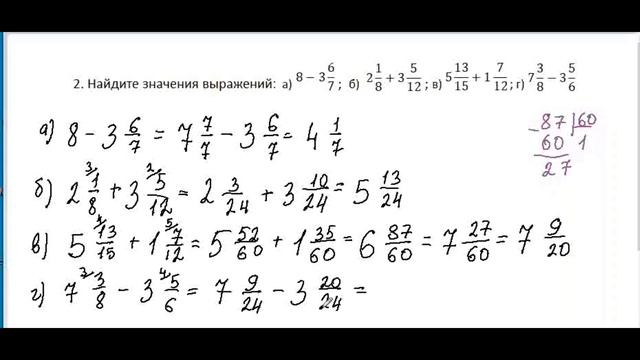 2. Найдите значения выражений: а) 8 − 3 6/7 ; б) 2 1/8 + 3 5/12 ; в) 5 13/15 + 1 7/12 ; г) 7 3/8 − 3 5/6
а) 8 − 3 6/7 = 7 7/7 − 3 6/7 = 4 1/7
− 87 | 60
60 1
27
б) 2 3/ 1/8 + 3 2/ 5/12 = 2 3/24 + 3 10/24 = 5 13/24
в) 5 4/ 13/15 + 1 5/ 7/12 = 5 52/60 + 1 35/60 = 6 87/60 = 7 27/60 = 7 9/20
г) 7 3/ 3/8 − 3 4/ 5/6 = 7 9/24 − 3 20/24 =